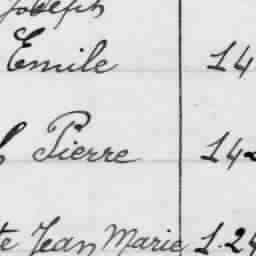 Joseph
Emile 14
Pierre 14
Jean Marie 1.24